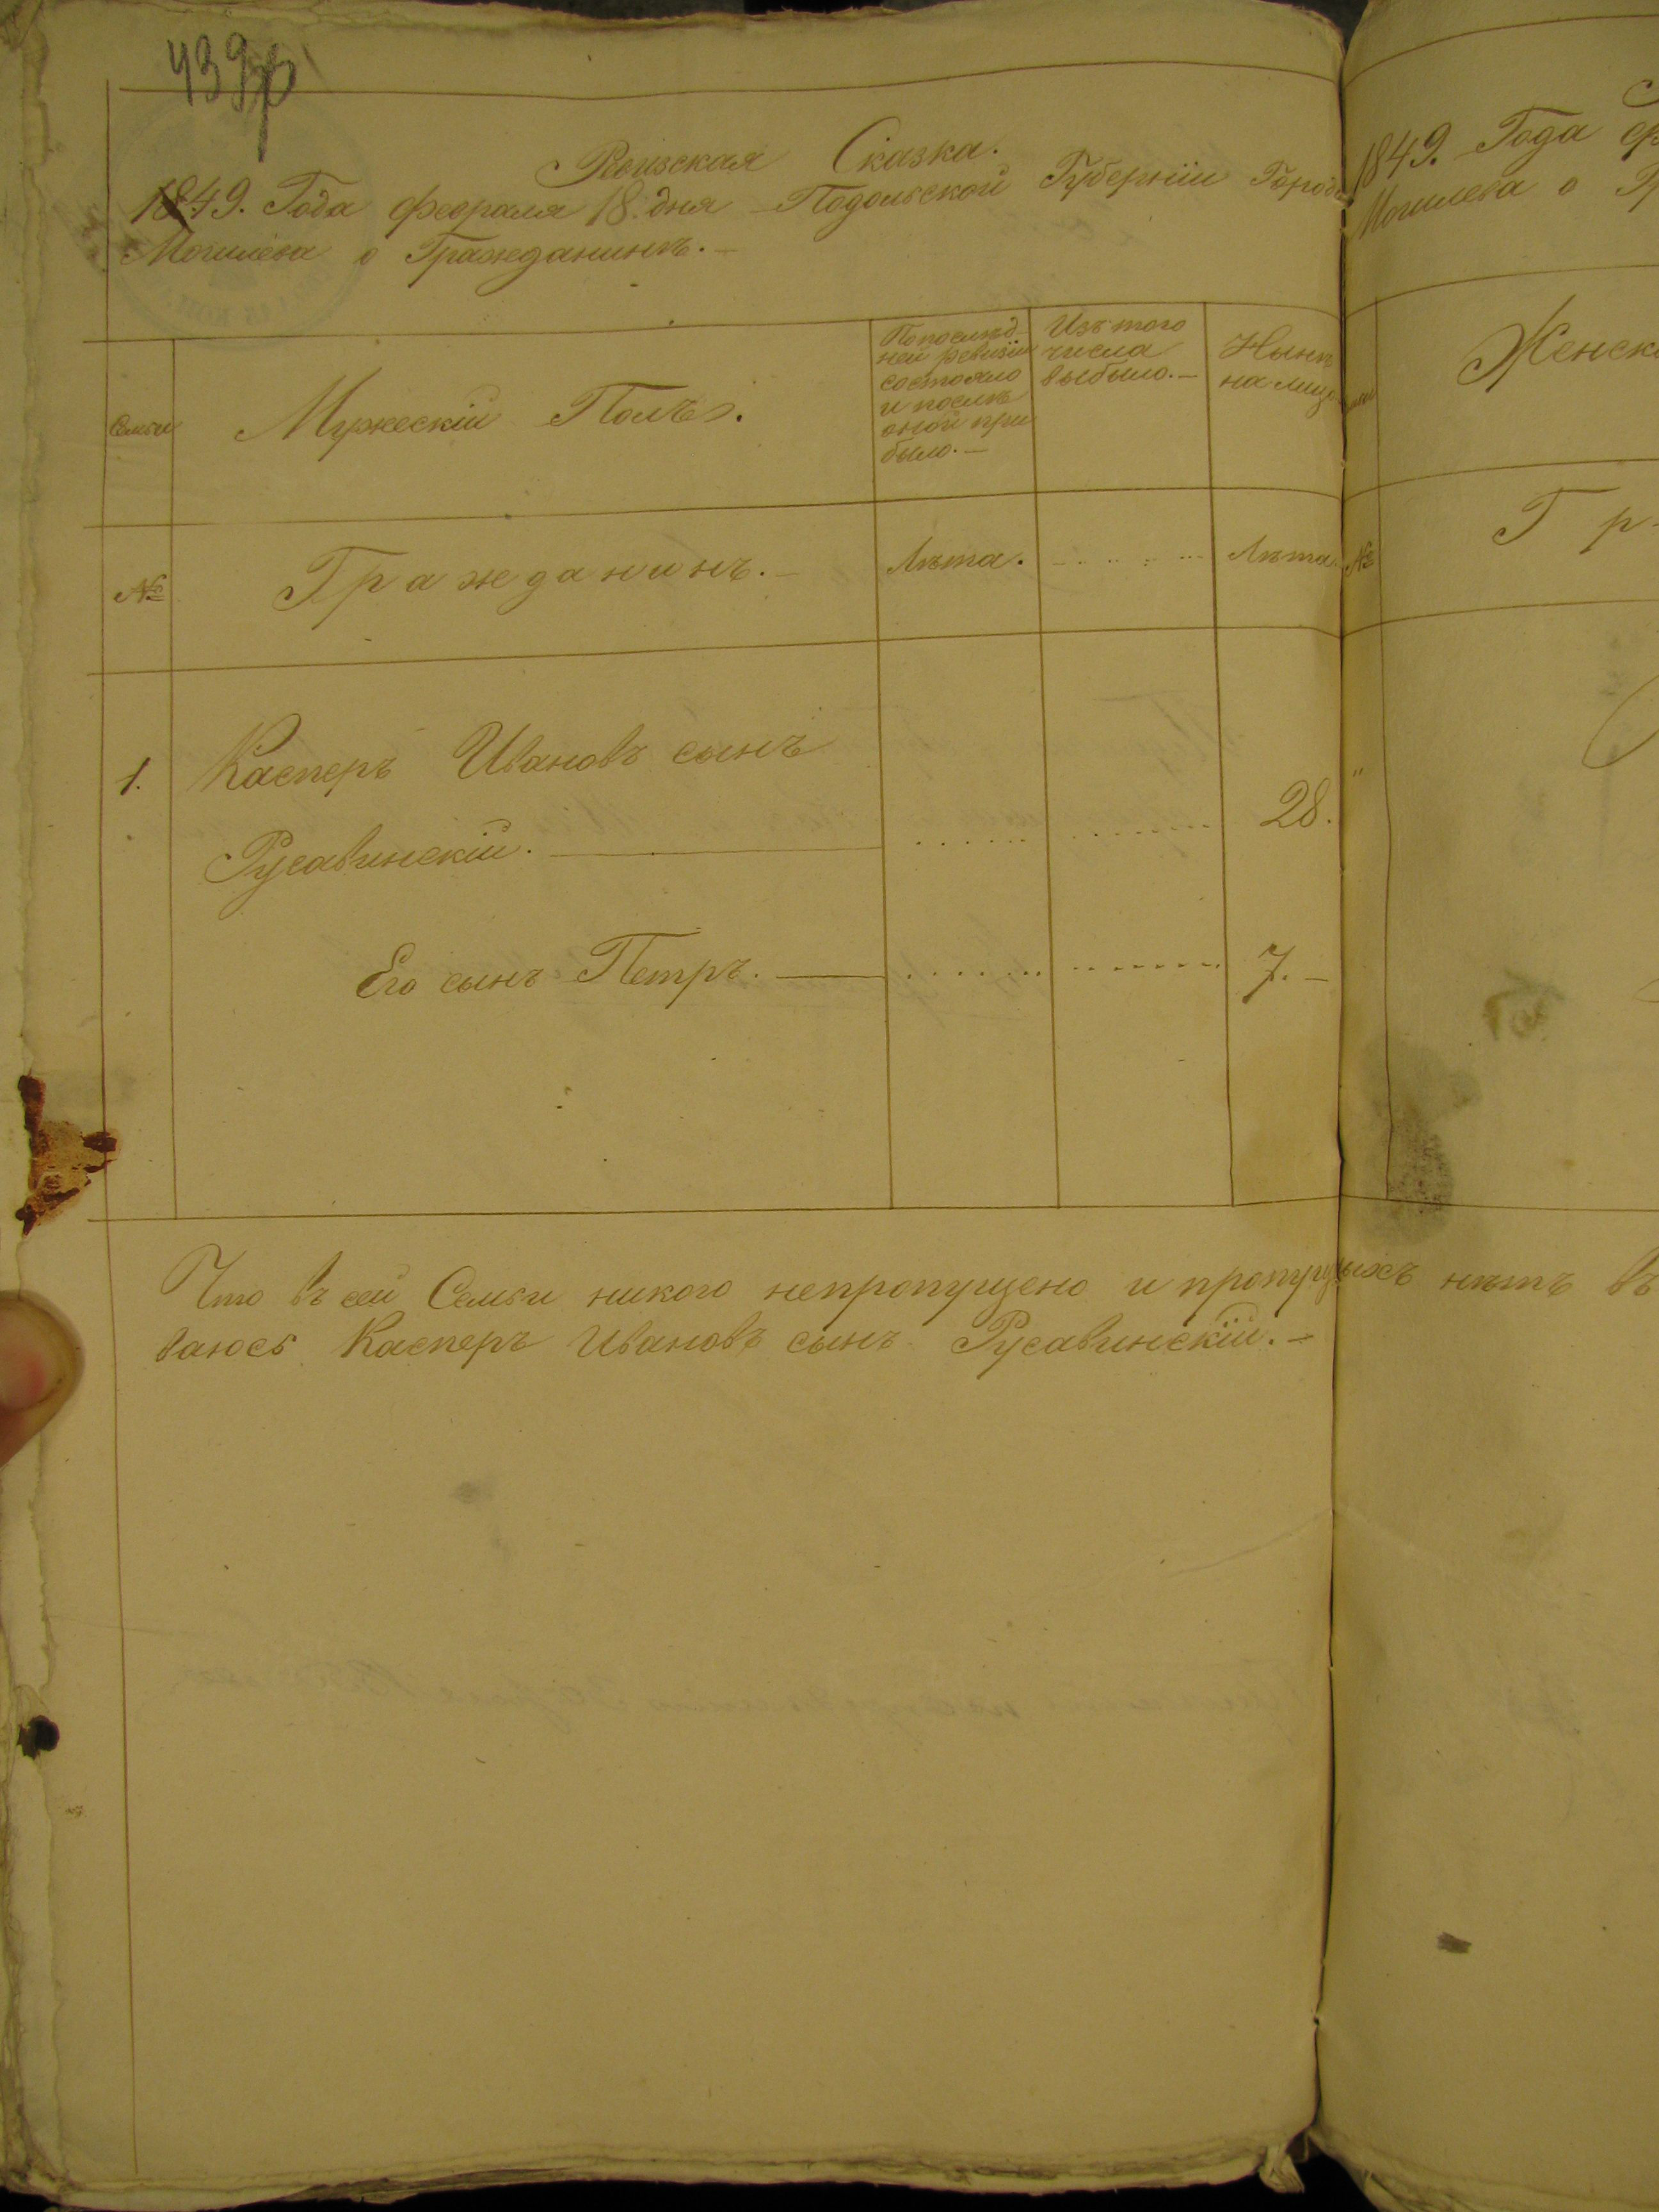 439
Ревизская Сказка.
1849. Года февраля 18. дня Подольской Губернiи Города
Могилева о Гражданинѣ.
Семьи
Мужескiй Полъ.
По послѣд-
ней ревизiи
состояло
и послѣ
оной при
было.
Изъ того
числа
выбыло.
Нынѣ
на лицо
№
Гражданинъ.
Лѣта.
Лѣта
1.
Касперъ Ивановъ сынъ
Русавинскiй.
28.
Его сынъ Петръ.
7.
Что въ сей Семьи никого непропущено и нѣтъ въ
ваюсь Касперъ Ивановъ сынъ Русавинскiй.
1849. Года
Могилева о
Женск
№
Гр